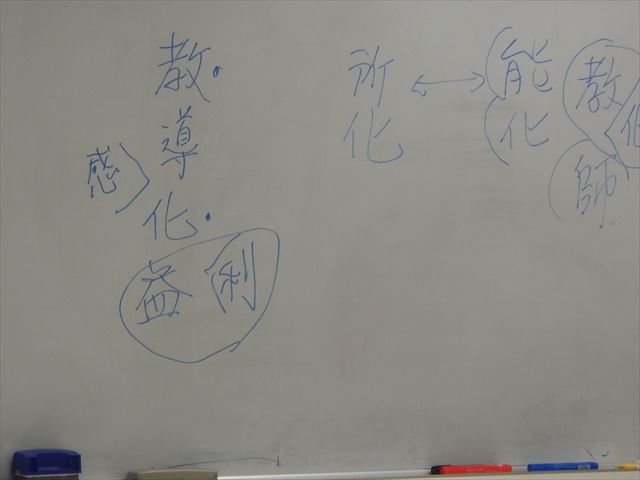 教化
師
能化
所化
教導化
感
利益